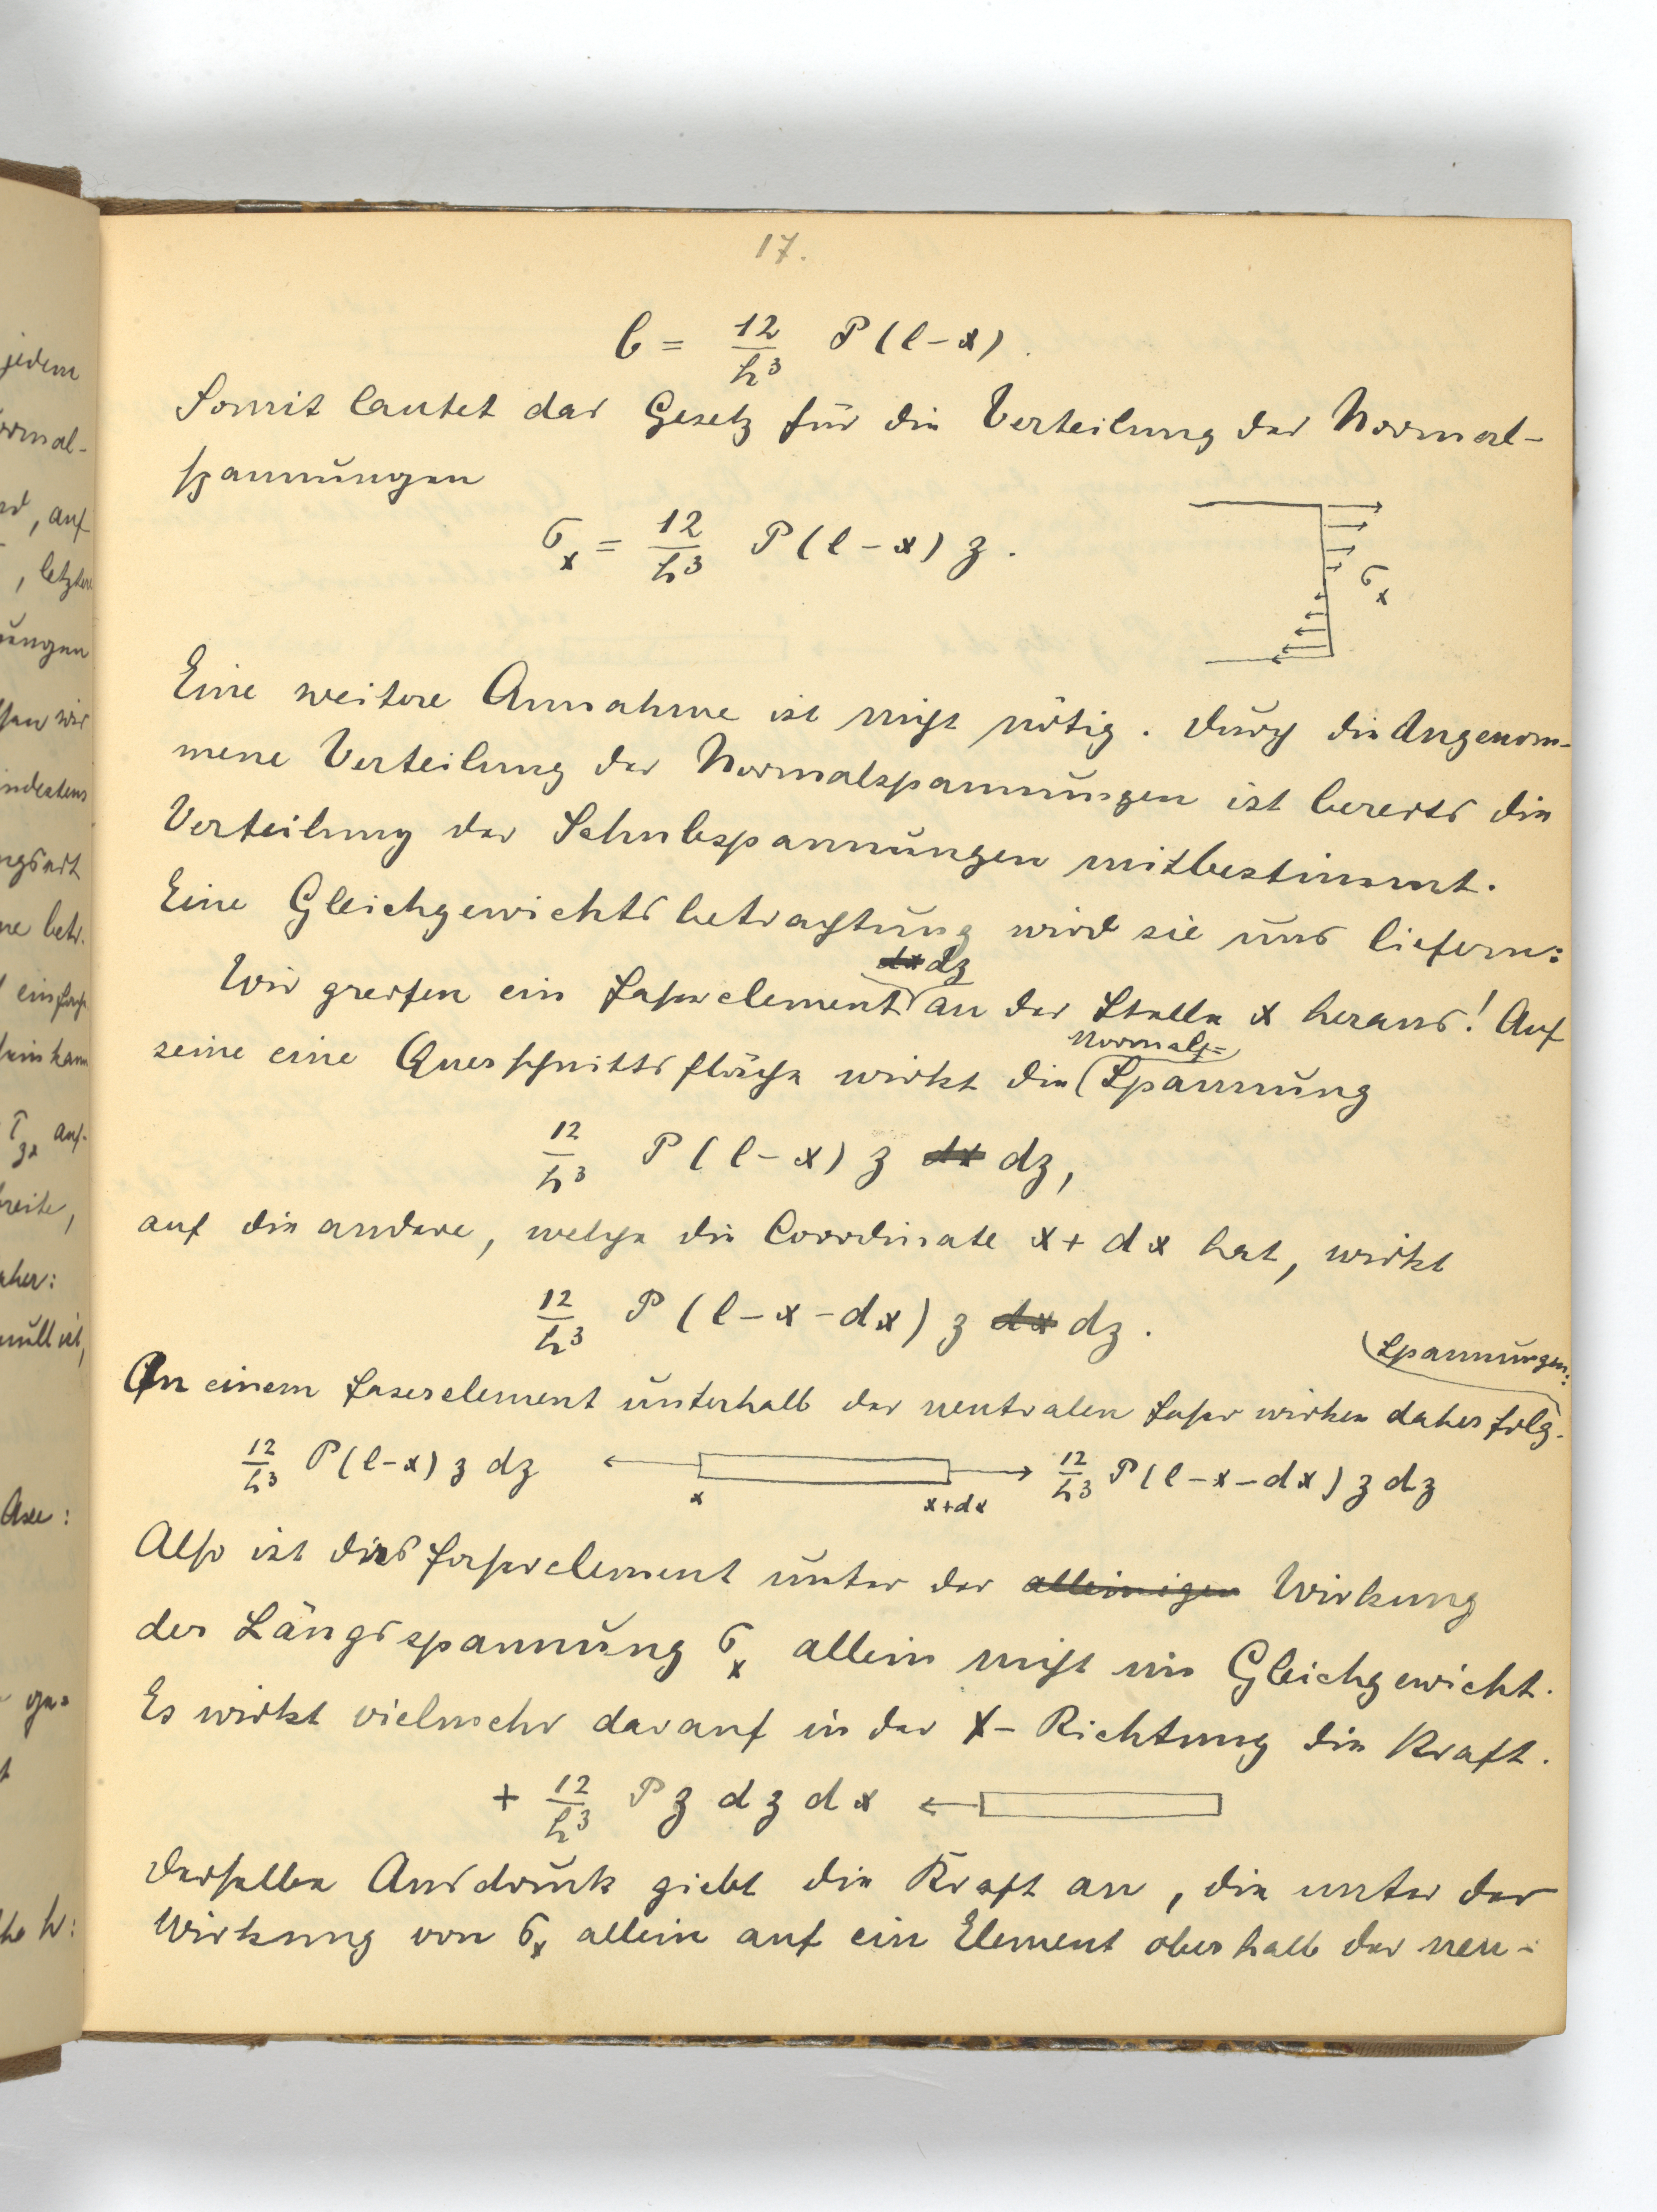 17.
b = 12/h³ P(l-x).
Somit lautet das Gesetz für die Verteilung der Normal-
spannungen
σx = 12/h³ P(l-x) z.
σx
Eine weitere Annahme ist nicht nötig. Durch die Angenom-
mene Verteilung der Normalspannungen ist bereits die
Verteilung der Schubspannungen mitbestimmt.
Eine Gleichgewichtsbetrachtung wird sie uns liefern:
dx dz
Wir greifen ein Faserelement an der Stelle x heraus! Auf
Normal-
seine eine Querschnittsfläche wirkt die Spannung
12/h³ P(l-x) z dx dz,
auf die andere, welche die Coordinate x+dx hat, wirkt
12/h³ P(l-x-dx) z dx dz.
Spannungen:
An einem Faserelement unterhalb der neutralen Faser wirken daher folg.
12/h³ P(l-x) z dz x x+dx 12/h³ P(l-x-dx) z dz
Also ist dies Faserelement unter der alleinigen Wirkung
der Längsspannung σx allein nicht im Gleichgewicht.
Es wirkt vielmehr darauf in der X-Richtung die Kraft.
+ 12/h³ P z dz dx
Derselbe Ausdruck giebt die Kraft an, die unter der
Wirkung von σx allein auf ein Element oberhalb der neu-
jedem
ormal-
, auf
, letztere
ungen
wir
indestens
ngsart
ne betr.
einfach
sein kann
τzx auf-
breite,
aher:
null ist,
Axe:
ge=
h: